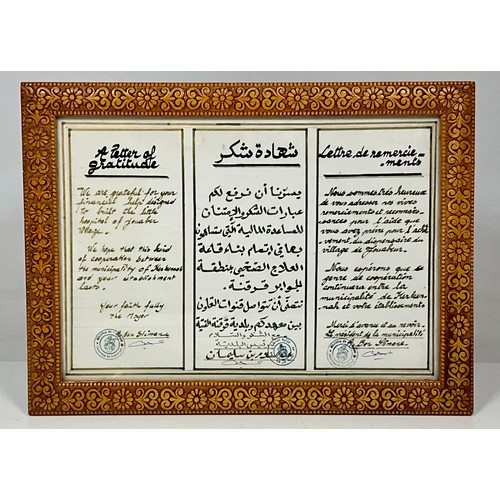 A letter of
gratitude
We are grateful for your
financial help designed
to built the little
hospital of jouaber
village.
We hope that this kind
of cooperation between
the municipality of Kerkenah
and your establishment
lasts.
Your faith fully
The Mayor
شهادة شكر
يسرّنا أن نرفع لكم
عبارات الشكر والإمتنان
للمساعدة المالية التي
بها في إتمام بناء قاعة
العلاج الصحّي بمنطقة
الجوابر قرقنة
نتمنّى أن تتواصل قنوات التعاون
بين معهدكم وبلدية قرقنة الفتية
مع الشكر والسلام
رئيس البلدية
بن سليمان
Lettre de remercie-
ments
Nous sommes très heureux
de vous adresser nos vives
remerciements et reconnais-
sances pour l'aide que
vous avez prévu pour l'achè-
vement, du dispensaire du
village de Jouaber.
Nous espérons que ce
genre de coopération
continuera entre la
municipalité de Kerken-
nah et votre établissement.
Merci d'avance et au revoir.
Le président de la municipalité